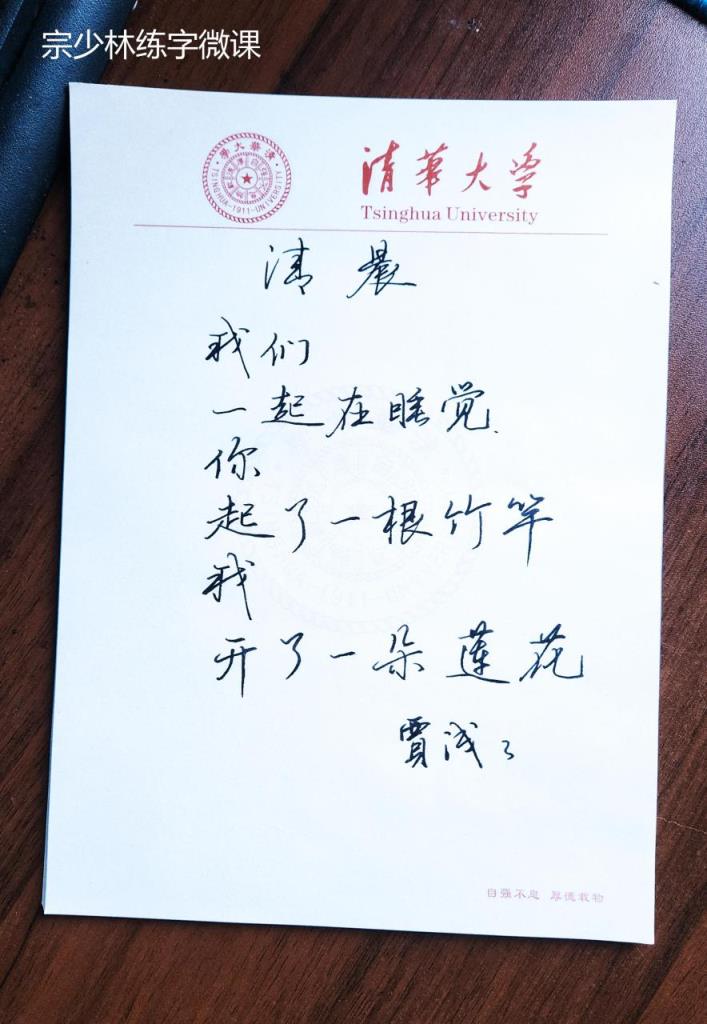 宗少林练字微课
清華大学
Tsinghua University
·清華大學·
TSINGHUA-1911-UNIVERSITY
清晨
我们
一起在睡觉
你
起了一根竹竿
我
开了一朵莲花
賈浅々
自强不息 厚德载物